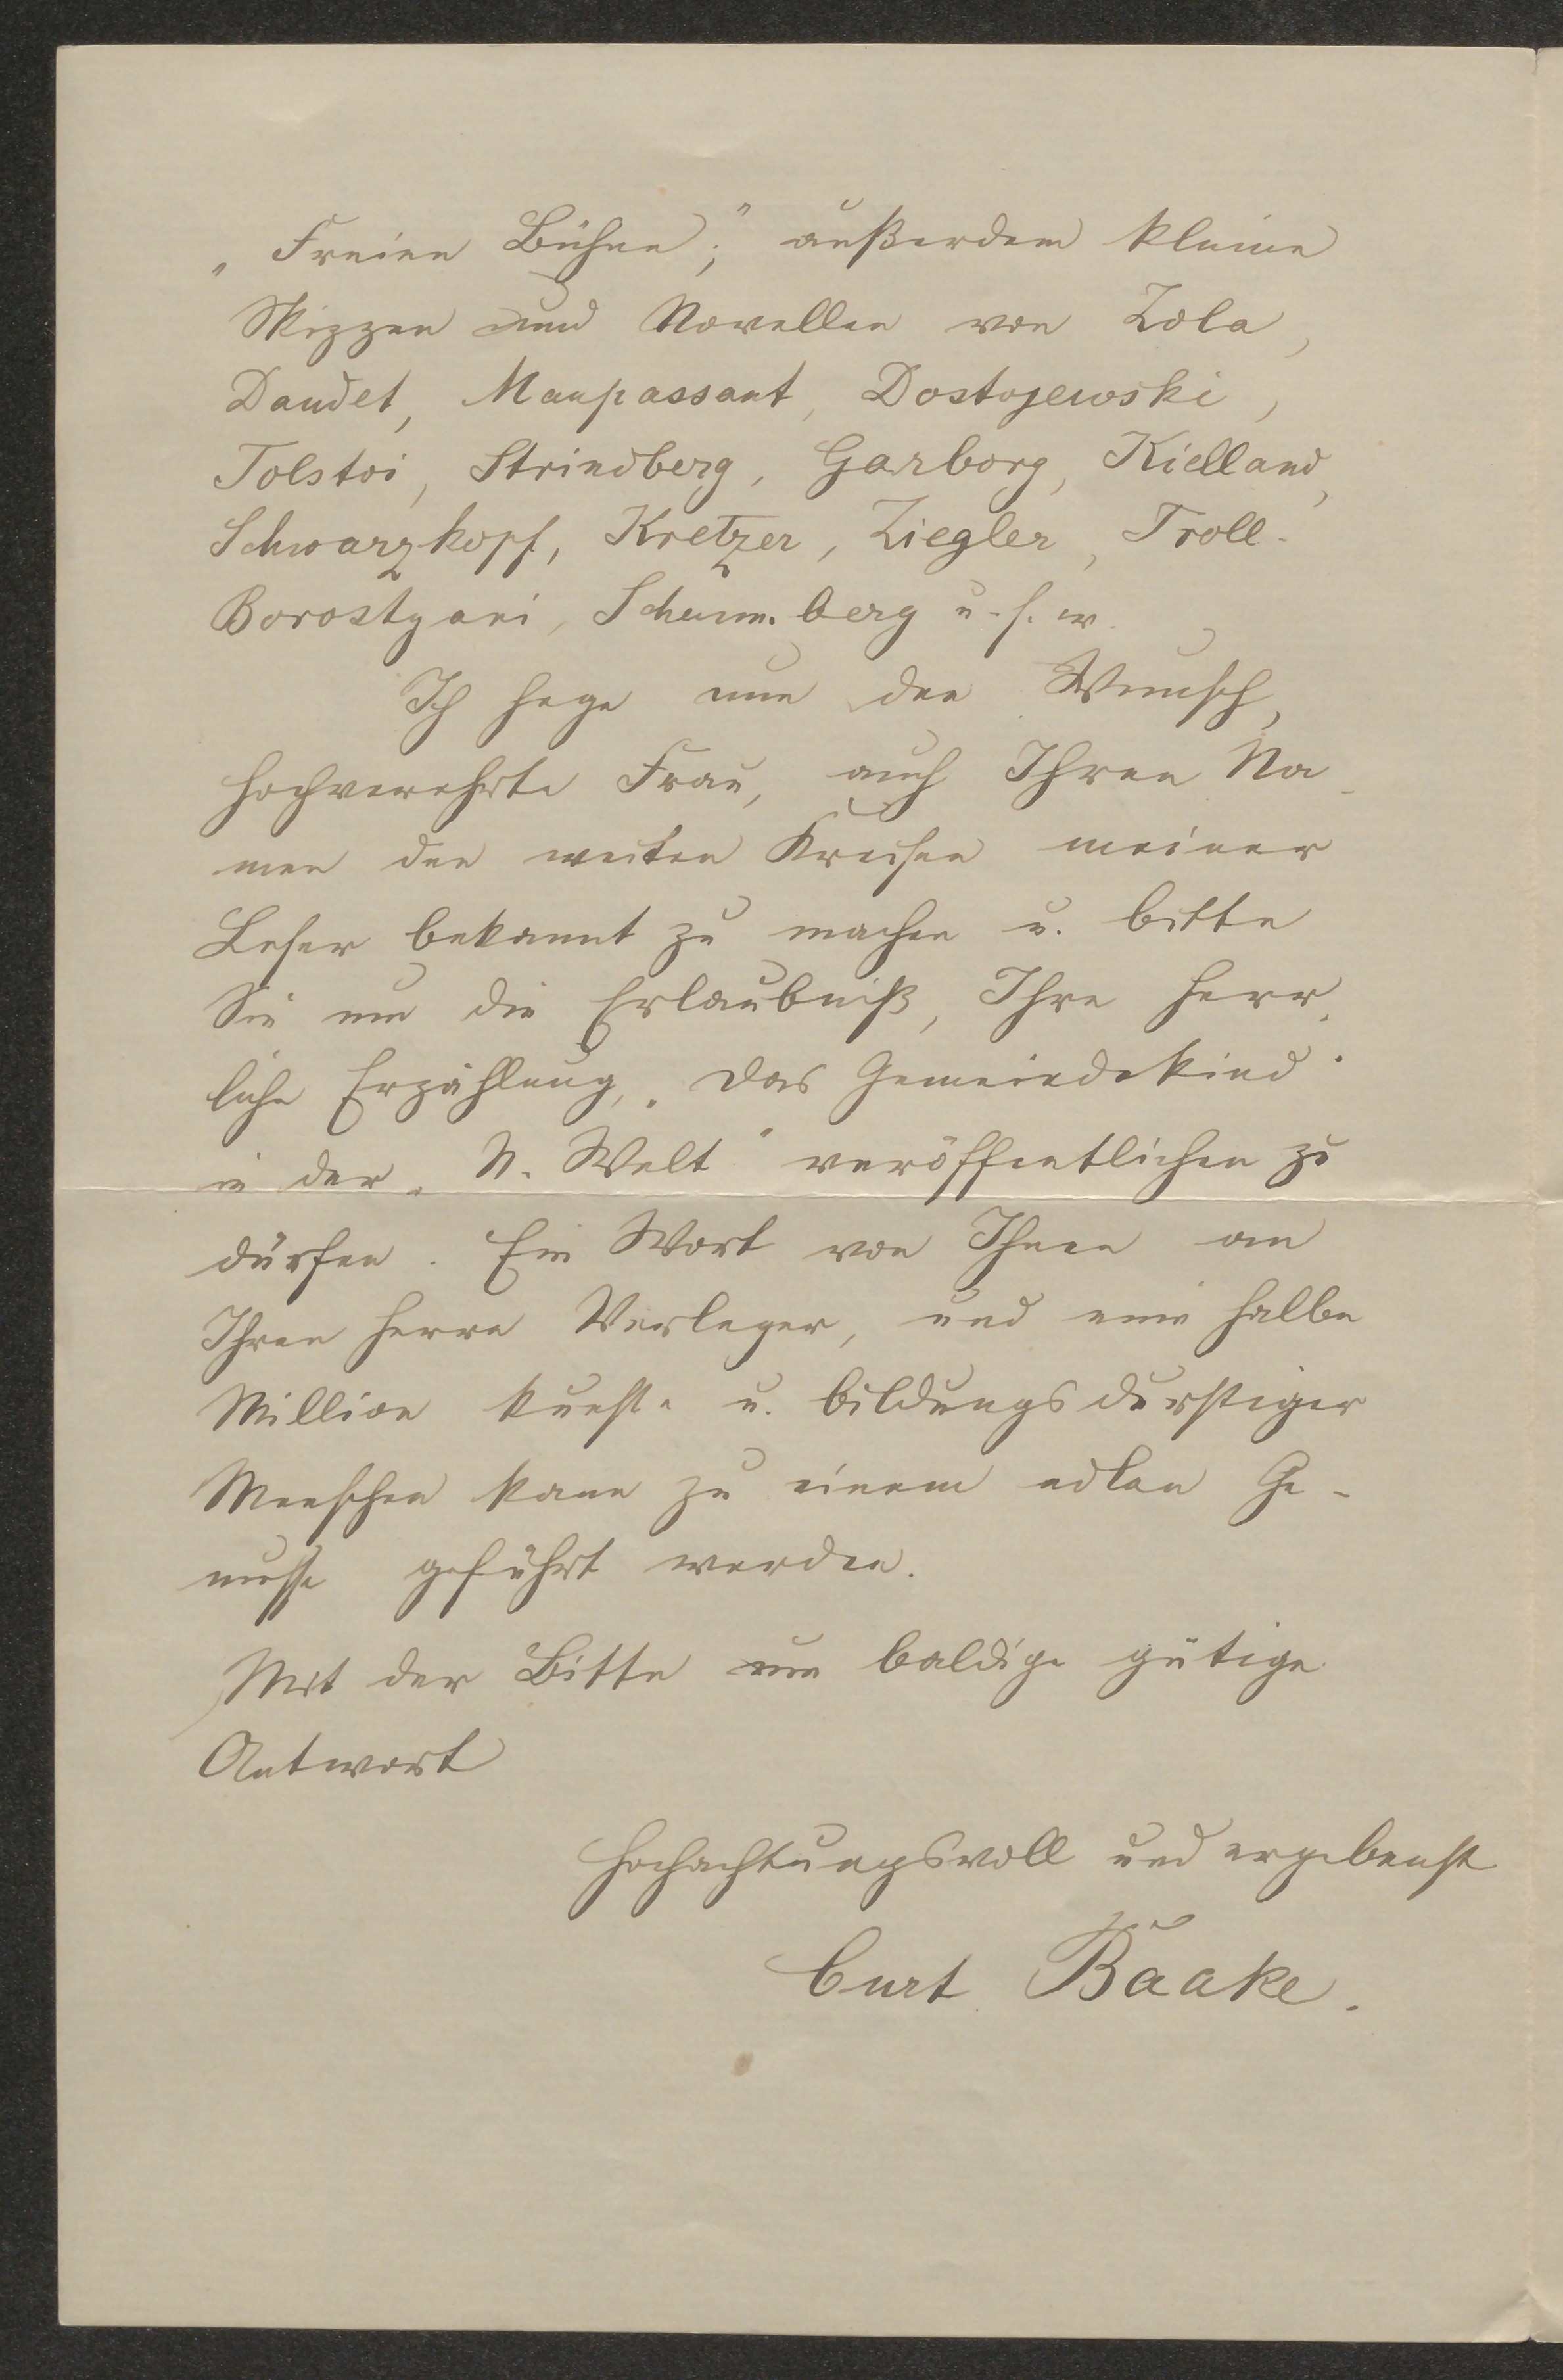 „Freien Bühne“; außerdem kleine
Skizzen und Novellen von Zola,
Daudet, Maupassant, Dostojewski,
Tolstoi, Strindberg, Garborg, Kielland,
Schwarzkopf, Kretzer, Ziegler, Troll-
Borostyani, Schaumberg u. s. w.
Ich hege nun den Wunsch,
hochverehrte Frau, auch Ihren Na-
men den weiten Kreisen meiner
Leser bekannt zu machen u. bitte
Sie um die Erlaubniß, Ihre herr-
liche Erzählung, „Das Gemeindekind“
in der „N. Welt“ veröffentlichen zu
dürfen. Ein Wort von Ihnen an
Ihren Herrn Verleger, und eine halbe
Million kunst- u. bildungsdurstiger
Menschen kann zu einem edlen Ge-
nusse geführt werden.
Mit der Bitte um baldige gütige
Antwort
Hochachtungsvoll und ergebenst
Curt Baake.